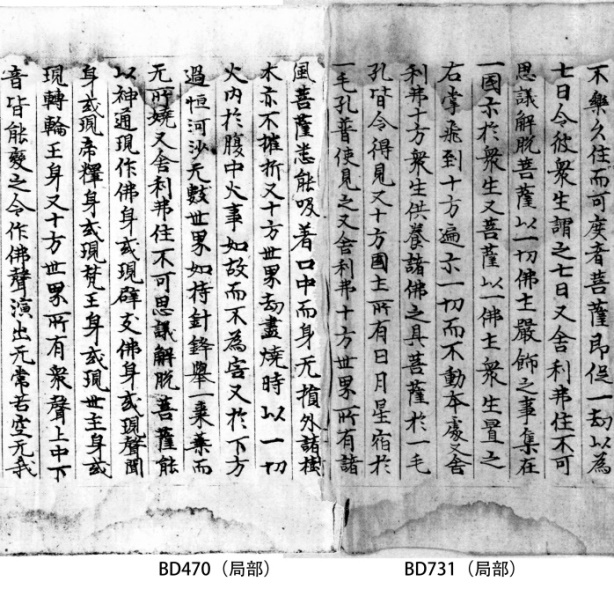 不樂久住而可度者菩薩即促一劫以為
七日令彼衆生謂之七日又舍利弗住不可
思議解脫菩薩以一切佛土嚴飾之事集在
一國示於衆生又菩薩以一佛土衆生置之
右掌飛到十方遍示一切而不動本處又舍
利弗十方衆生供養諸佛之具菩薩於一毛
孔皆令得見又十方國土所有日月星宿於
一毛孔普使見之又舍利弗十方世界所有諸
風菩薩悉能吸著口中而身无損外諸樹
木亦不摧折又十方世界劫盡燒時以一切
火內於腹中火事如故而不為害又於下方
過恒河沙无數世界如持針鋒舉一棗葉而
无所嬈又舍利弗住不可思議解脫菩薩能
以神通現作佛身或現辟支佛身或現聲聞
身或現帝釋身或現梵王身或現世主身或
現轉輪王身又十方世界所有衆聲上中下
音皆能變之令作佛聲演出无常苦空无我
BD470（局部）
BD731（局部）